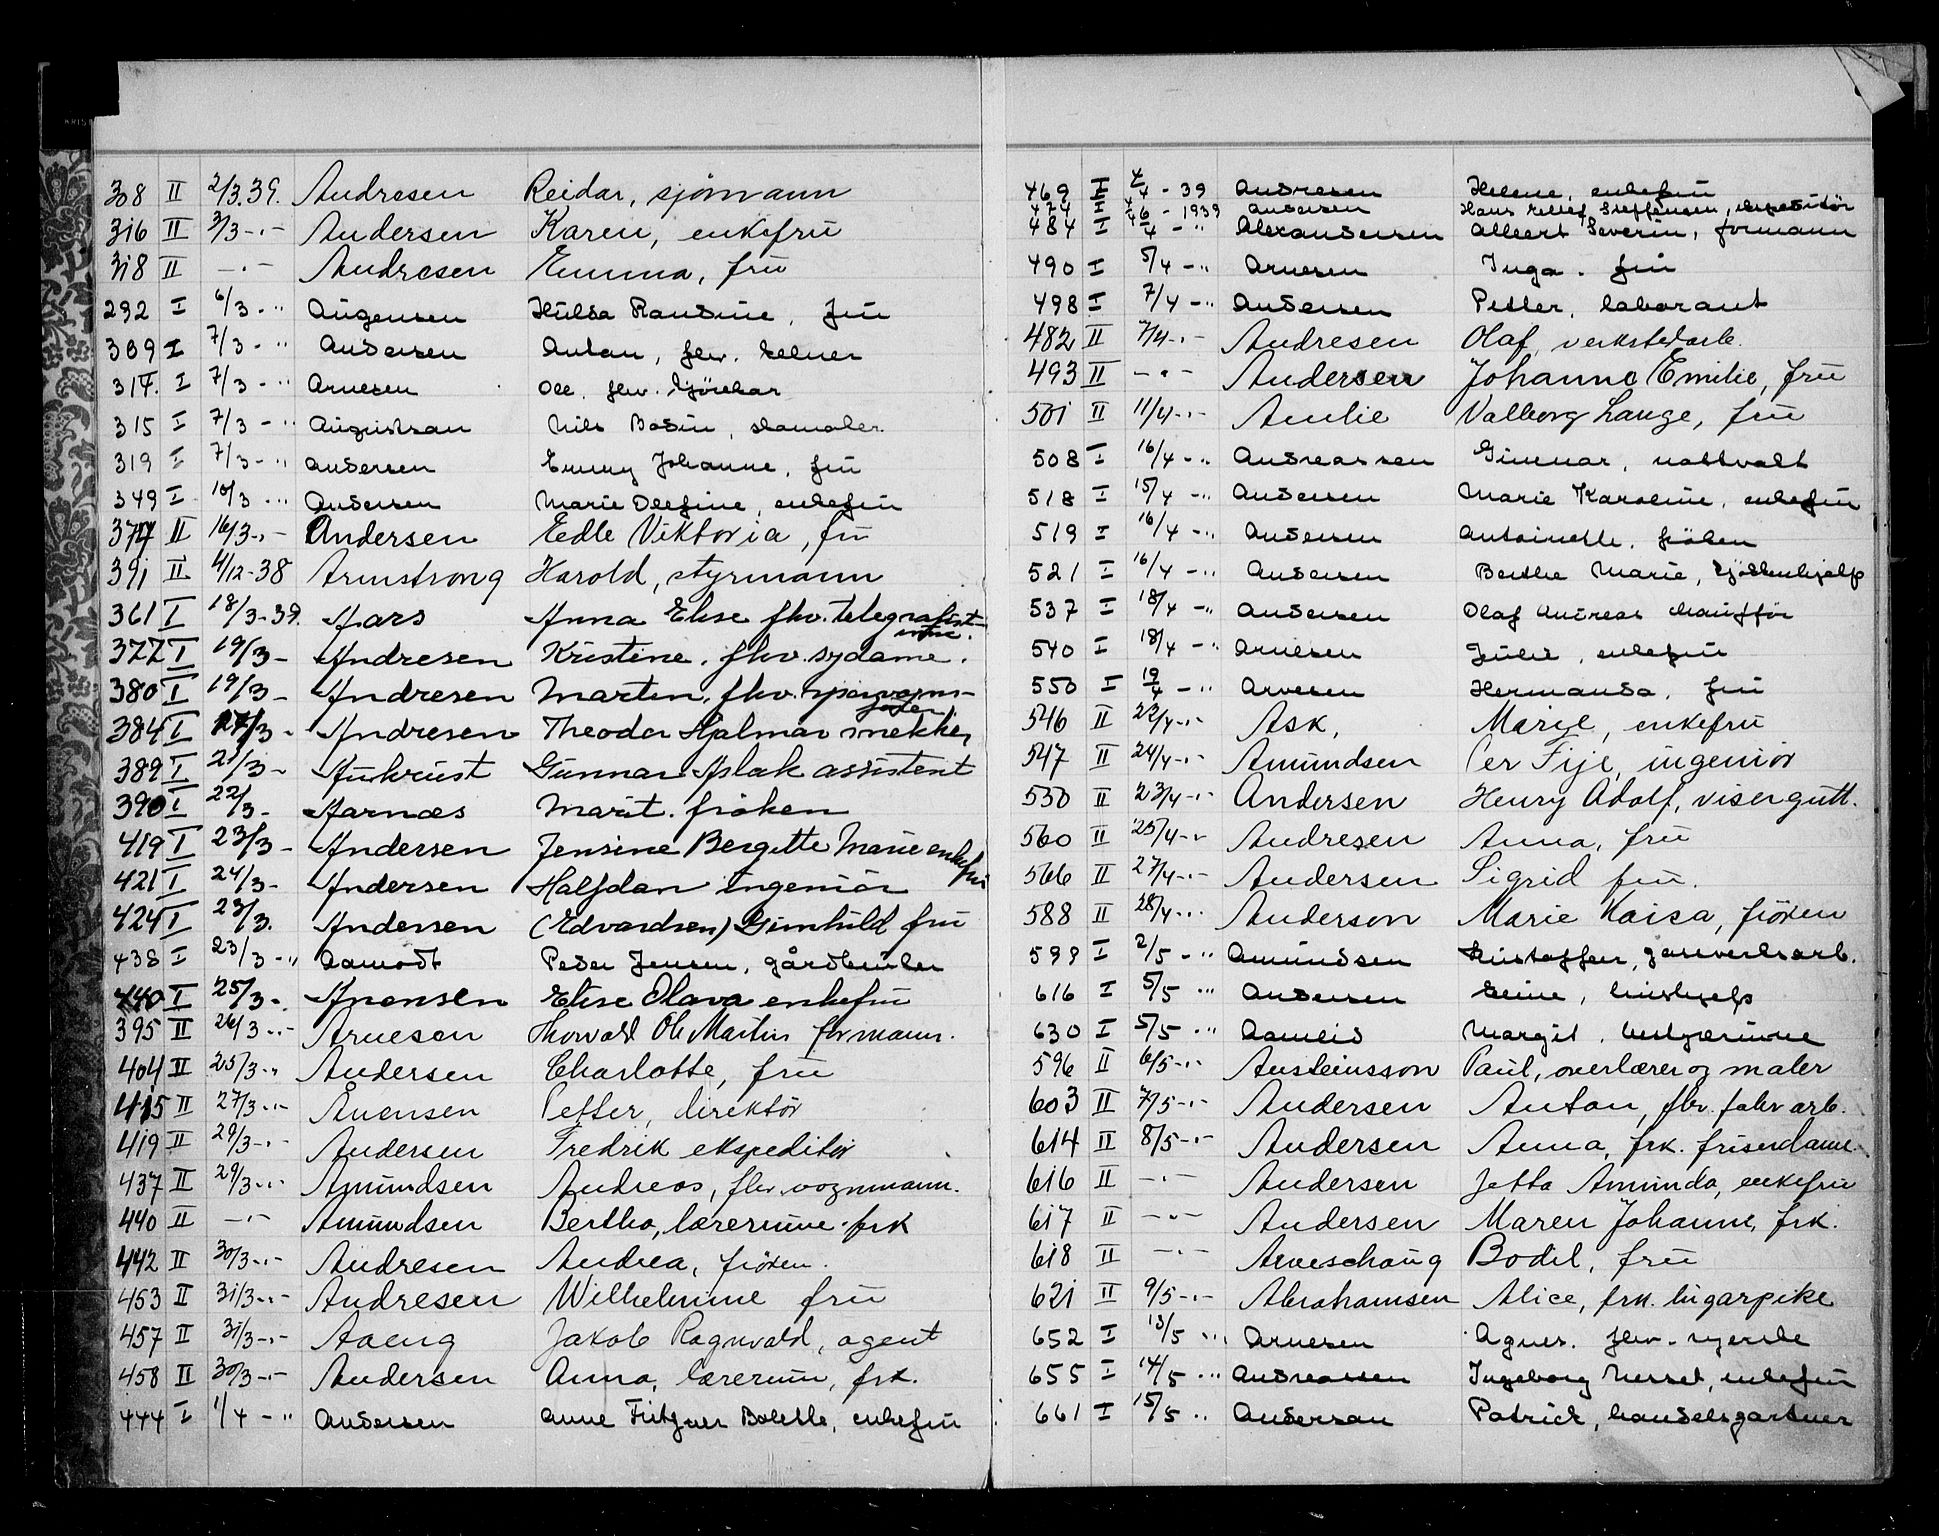 308 II 2/3.39. Andresen Reidar, sjømann
316 II 3/3-.- Andersen Karen, enkefru
318 II -.- Andresen Emma, frü
292 I 6/3 - " Augensen Hulda Randine, frü
309 I 7/3 - " Andersen Anton, fhv. kelner
317. I 7/3 - " Arnesen Ole, fhv.
315 I 7/3 - " Augustson Nils Bodin,
319 I 7/3 - " Andersen Emmy Johanne, frü
349 I 10/3 - " Andersen Marie Olefine, enkefrü
374 II 16/3-.- Andersen Edle Viktoria, frü
391 II 4/12-38 Armstrong Harold, styrmann
361 I 18/3-39. Aars Anna Elise fhv. telegrafist-
inne.
377 I 19/3 - Andresen Kristine, fhv. sydame.
380 I 19/3 - Andresen Martin, fhv. sporvogns-
384 I 17/3 - Andresen Theodor Hjalmar snekker
389 I 21/3 - Aukrust Gunnar Aslak assistent
390 I 22/3 - Aarnæs Marit. frøken
419 I 23/3 - Andersen Jensine Bergitte Marie enkefrü
421 I 24/3 - Andersen Halfdan ingeniør
424 I 23/3. Andersen (Edvardsen) Gunhild frü
438 I 23/3 - " Aamodt Peder Jensen, gårdbruker
440 I 25/3 - Aronsen Elise Olava enkefrü
395 II 26/3-.- Arnesen Thorvald Ole Martin formann.
404 II 25/3-.- Andersen Charlotte, frü
415 II 27/3-.- Auensen Petter, direktør
419 II 29/3-.- Andersen Fredrik ekspeditør
437 II 29/3-.- Amundsen Andreas, fhv. vognmann.
440 II -.- Amundsen Bertha, lærerinne frk
442 II 30/3-.- Andresen Andrea, frøken.
453 II 31/3-.- Andresen Wilhelmine frü
457 II 31/3-.- Aaeng Jakob Ragnvald, agent
458 II 30/3-.- Andersen Anna, lærerinn, frk.
444 I 1/4 - " Andersen Anne Fritzner Bolette, enkefrü
469 I 4/4 - 39 Andresen Helene, enkefrü
474 I 4/6 - 1939 Andersen Hans Steffensen, ekspeditør
484 I 4/4 - " Alexandersen Albert Severin, formann
490 I 5/4 - " Arnesen Inga. frü
498 I 7/4 - " Andersen Petter, laborant
482 II 7/4-.- Andresen Olaf, verkstedarb.
493 II -.- Andersen Johanne Emilie, frü
501 II 11/4-.- Amlie Valborg Lange, frü
508 I 16/4 - " Andreassen Gunnar, nattvakt
518 I 15/4 - " Andersen Marie Karoline, enkefrü
519 I 16/4 - " Andersen Antoinette, frøken
521 I 16/4 - " Andersen Berthe Marie, kjøkkenhjelp
537 I 18/4 - " Andersen Olaf Andreas chauffør
540 I 18/4 - " Arnesen Julie, enkefrü
550 I 19/4 - " Arnesen Hermanda, frü
546 II 22/4-.- Ask, Marie, enkefru
547 II 24/4-.- Amundsen Per Fije, ingeniør
550 II 23/4-.- Andersen Henry Adolf, visergutt.
560 II 25/4-.- Andresen Anna, frü
566 II 27/4-.- Andersen Sigrid frü.
588 II 28/4-.- Anderson Marie Kaisa, frøken
599 I 2/5 - " Amundsen Kristoffer, gassverksarb.
616 I 5/5 " Andersen Eline, hushjelp
630 I 5/5 - " Aamlid Margit,
596 II 6/5-.- Austeinsson Paul, overlærer og maler
603 II 7/5-.- Andersen Anton, fhv. fabr arb.
614 II 8/5-.- Andersen Anna, frk. friserdame.
616 II -.- Andersen Jetta Amunda, enkefrü
617 II -.- Andersen Maren Johanne, frk.
618 II -.- Arveschoug Bodil, frü
621 II 9/5-.- Abrahamsen Alice, frk. cigarpike
652 I 13/5 " Arnesen Agnes. fhv. syerske
655 I 14/5 " Andreassen Ingeborg Nerset, enkefrü
661 I 15/5 " Anderson Patrick, handelsgartner